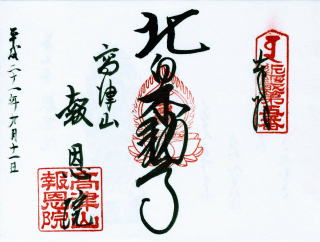 奉拝
北向不動
高津山
報恩院
平成二十一年六月十一日
高津山
報恩院